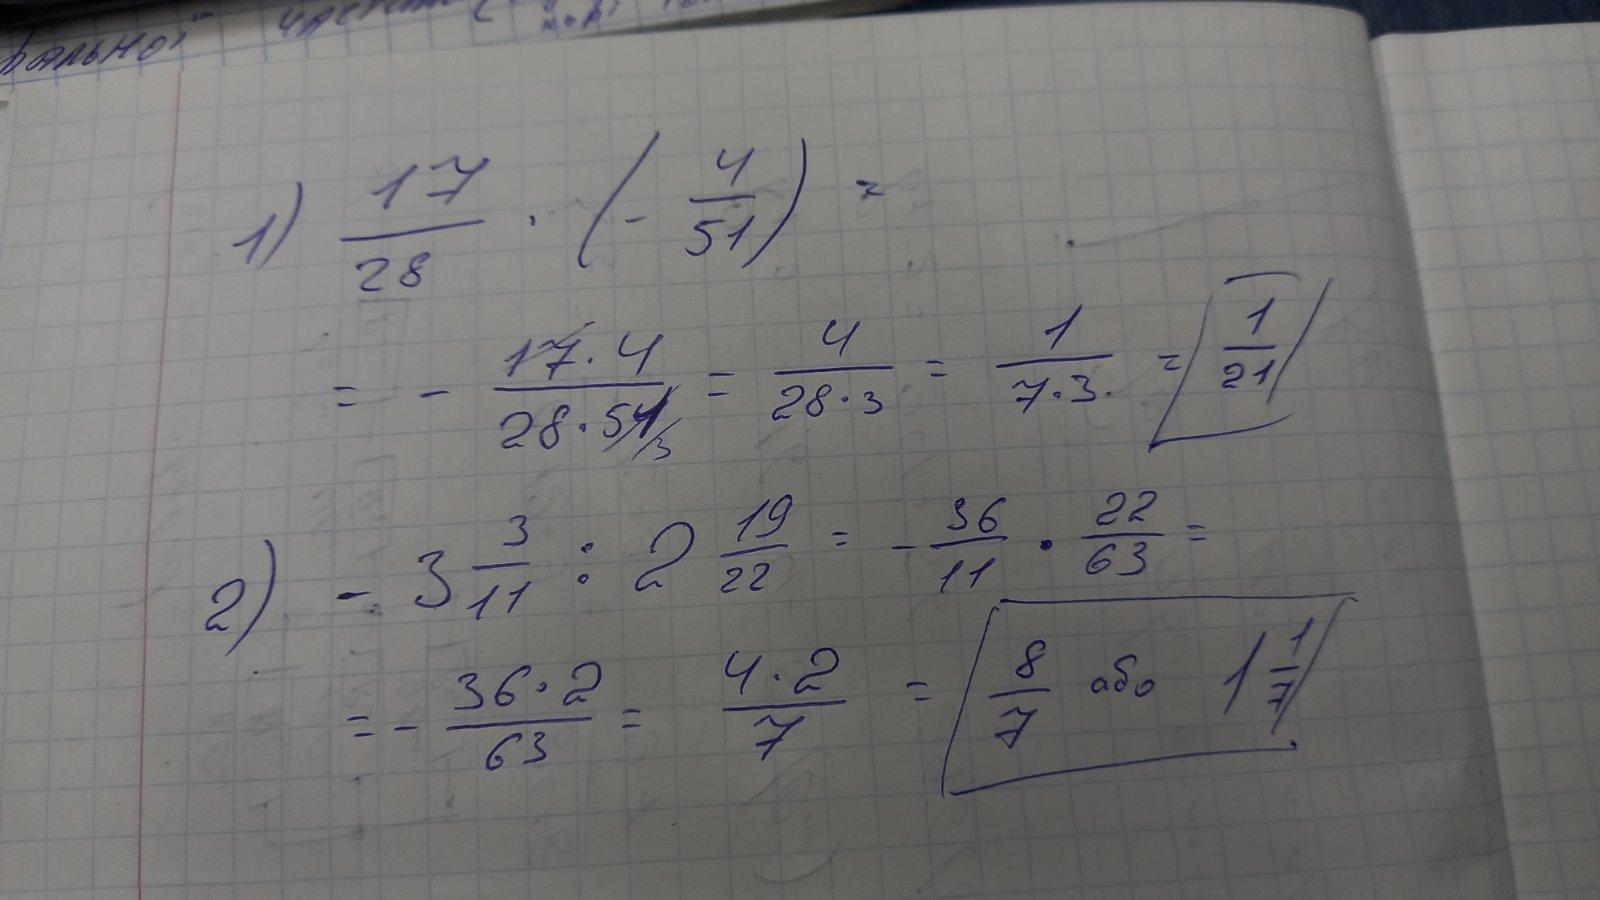 фальної части
1) 17/28 · (- 4/51) =
= - 17·4/28·51/3 = 4/28·3 = 1/7·3 = 1/21
2) - 3 3/11 : 2 19/22 = - 36/11 · 22/63 =
= - 36·2/63 = 4·2/7 = 8/7 або 1 1/7